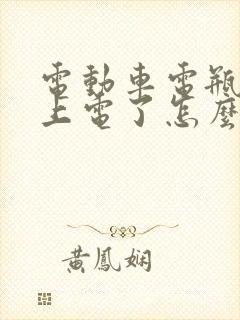 電動車電瓶
上電了怎麼
黃鳳嫻